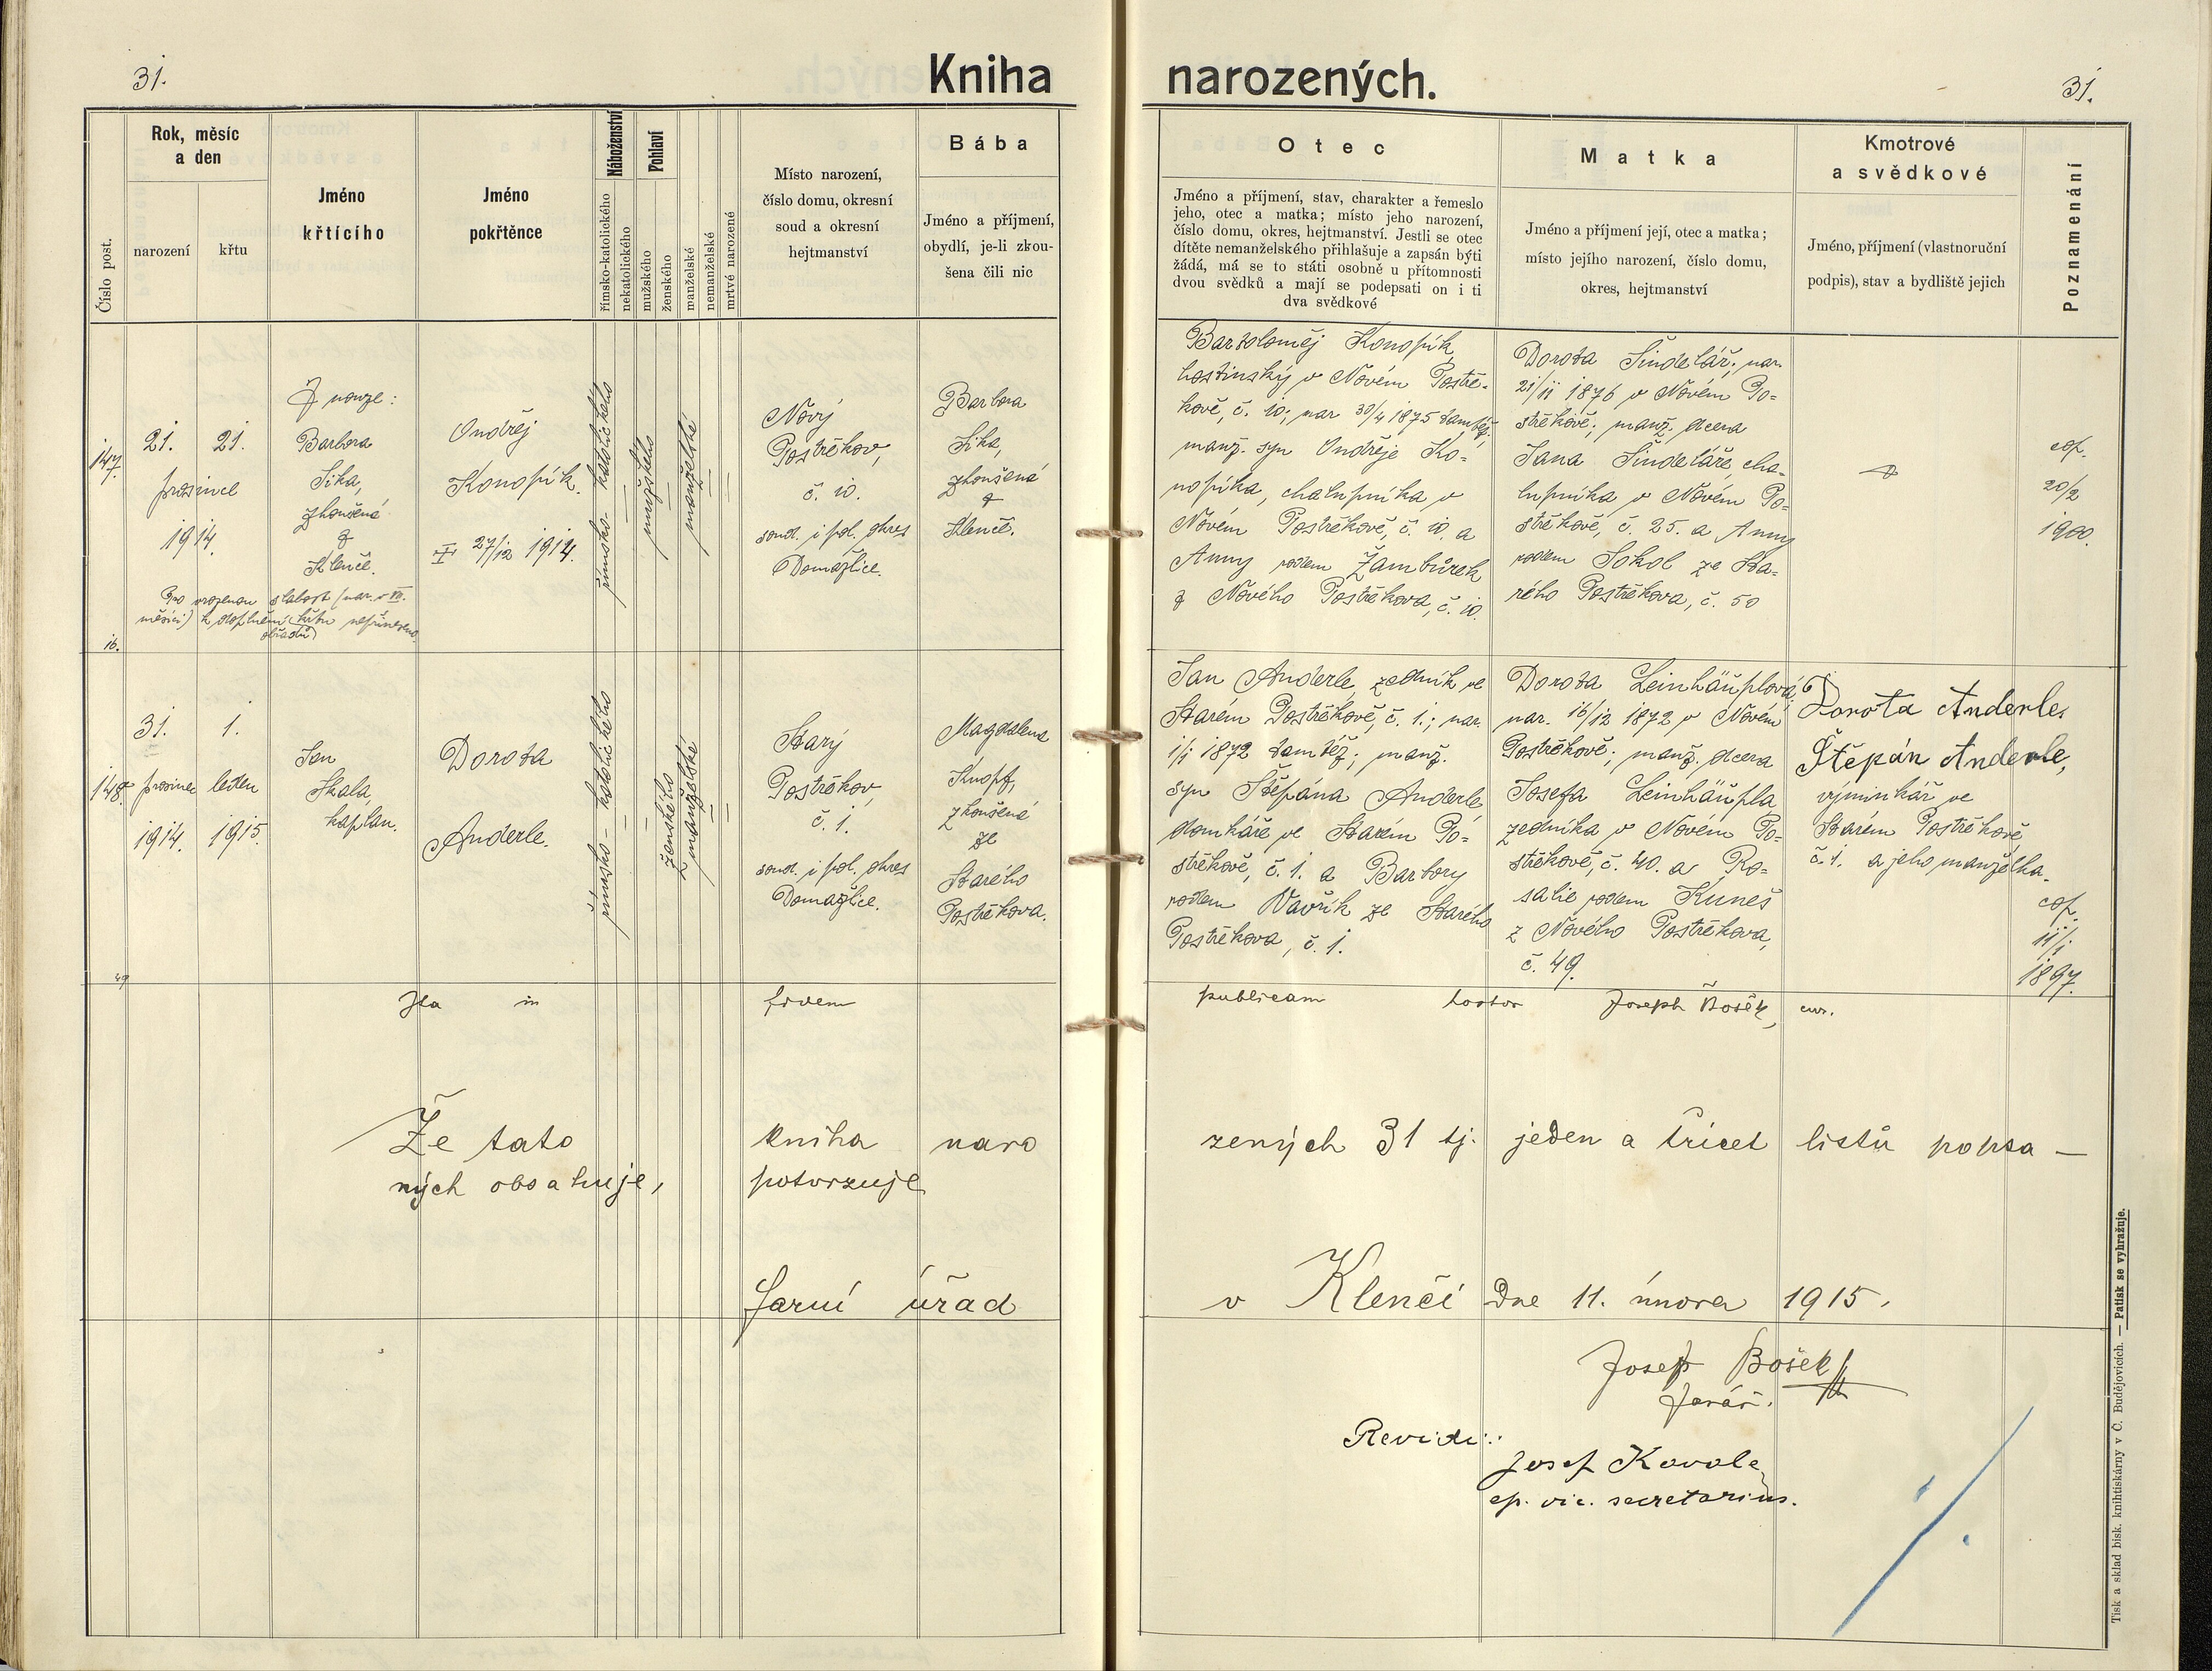 31.
Kniha narozených.
31.
Číslo post.
Rok, měsíc
a den
narození
křtu
Jméno
křtícího
Jméno
pokřtěnce
Náboženství
římsko-katolického
nekatolického
Pohlaví
mužského
ženského
manželské
nemanželské
mrtvé narozené
Místo narození,
číslo domu, okresní
soud a okresní
hejtmanství
Bába
Jméno a příjmení,
obydlí, je-li zkou-
šena čili nic
Otec
Jméno a příjmení, stav, charakter a řemeslo
jeho, otec a matka; místo jeho narození,
číslo domu, okres, hejtmanství. Jestli se otec
dítěte nemanželského přihlašuje a zapsán býti
žádá, má se to státi osobně u přítomnosti
dvou svědků a mají se podepsati on i ti
dva svědkové
Matka
Jméno a příjmení její, otec a matka;
místo jejího narození, číslo domu,
okres, hejtmanství
Kmotrové
a svědkové
Jméno, příjmení (vlastnoruční
podpis), stav a bydliště jejich
Poznamenání
147.
21. 21.
prosinec
1914.
Z nouze:
Barbora
Sika,
zkoušená
z
Klenče.
Pro vrozenou slabost (nar. v VII.
měsíci) k doplnění křtu nepřineseno.
obřadů
Ondřej
Konopík.
27/12 1914.
římsko-katolického
mužského
manželské
Nový
Postřekov,
č. 10.
soud. i pol. okres
Domažlice.
Barbora
Sika,
zkoušená
z
Klenče.
Bartoloměj Konopík,
hostinský v Novém Postře-
kově, č. 10; nar 30/4 1875 tamtéž;
manž. syn Ondřeje Ko-
nopíka, chalupníka v
Novém Postřekově, č. 10. a
Anny rodem Žambůrek
z Nového Postřekova, č. 10.
Dorota Šindelář; nar.
21/11 1876 v Novém Po-
střekově; manž. dcera
Jana Šindeláře, cha-
lupníka v Novém Po-
střekově, č. 25. a Anny
rodem Sokol ze Sta-
rého Postřekova, č. 50
cop.
20/2
1900.
16.
148.
31. 1.
prosinec leden
1914. 1915.
Jan
Skala,
kaplan.
Dorota
Anderle.
římsko-katolického
ženského
manželské
Starý
Postřekov,
č. 1.
soud. i pol. okres
Domažlice.
Magdalena
Knopf,
zkoušená
ze
Starého
Postřekova.
Jan Anderle, zedník ve
Starém Postřekově, č. 1.; nar.
1/1 1872 tamtéž; manž.
syn Štěpána Anderle
domkáře ve Starém Po-
střekově, č. 1. a Barbory
rodem Vavřík ze Starého
Postřekova, č. 1.
Dorota Leinhäuplová,
nar. 16/12 1872 v Novém
Postřekově; manž. dcera
Josefa Leinhäupla
zedníka v Novém Po-
střekově, č. 40. a Ro-
salie rodem Kuneš
z Nového Postřekova,
č. 49.
Dorota Anderle,
Štěpán Anderle,
výminkář ve
Starém Postřekově,
č. 1. a jeho manželka.
cop.
11/1
1897.
49
Ita in fidem publicam testor Joseph Bošek, cur.
Že tato kniha naro zených 31 tj. jeden a třicet listů popsa –
ných obsahuje, potvrzuje
farní úřad v Klenčí dne 11. února 1915.
Josef Bošek
farář.
Revidi:
Josef Kovale
ep. vic. secretarius.
Tisk a sklad bisk. knihtiskárny v Č. Budějovicích. — Patisk se vyhražuje.